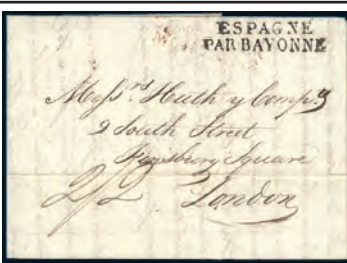 ESPAGNE
PAR BAYONNE
Messrs Huth y Compy
9 South Street
Finsbury Square
2/2 London